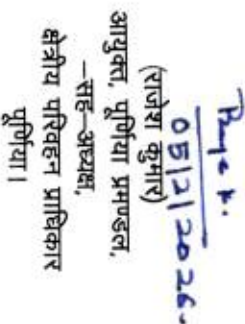 05/2/2026.
(राजेश कुमार)
आयुक्त, पूर्णिया प्रमण्डल,
–सह–अध्यक्ष,
क्षेत्रीय परिवहन प्राधिकार
पूर्णिया।